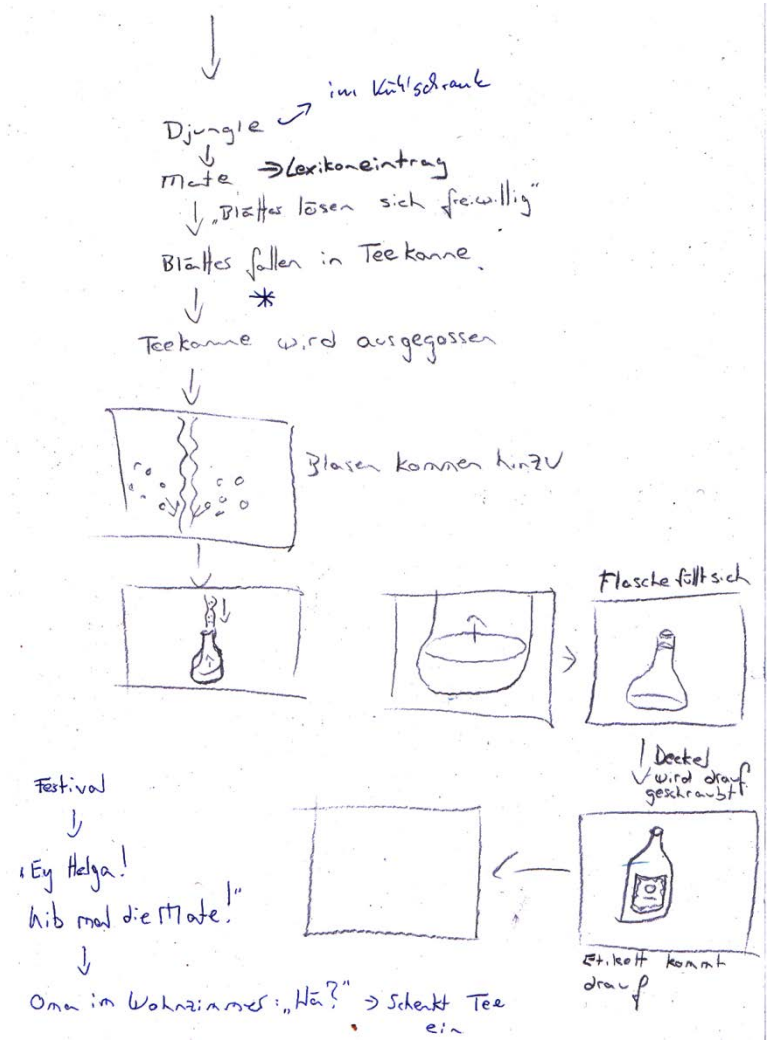 im Kühlschrank
Djungle
Mate ⇒ Lexikoneintrag
„Blätter lösen sich freiwillig"
Blätter fallen in Teekanne
*
Teekanne wird ausgegossen
Blasen kommen hinzu
Flasche füllt sich
Deckel
wird drauf
geschraubt
Festival
„Ey Helga!
Gib mal die Mate!"
Etikett kommt
drauf
Oma im Wohnzimmer: „Hä?" → Schenkt Tee
ein